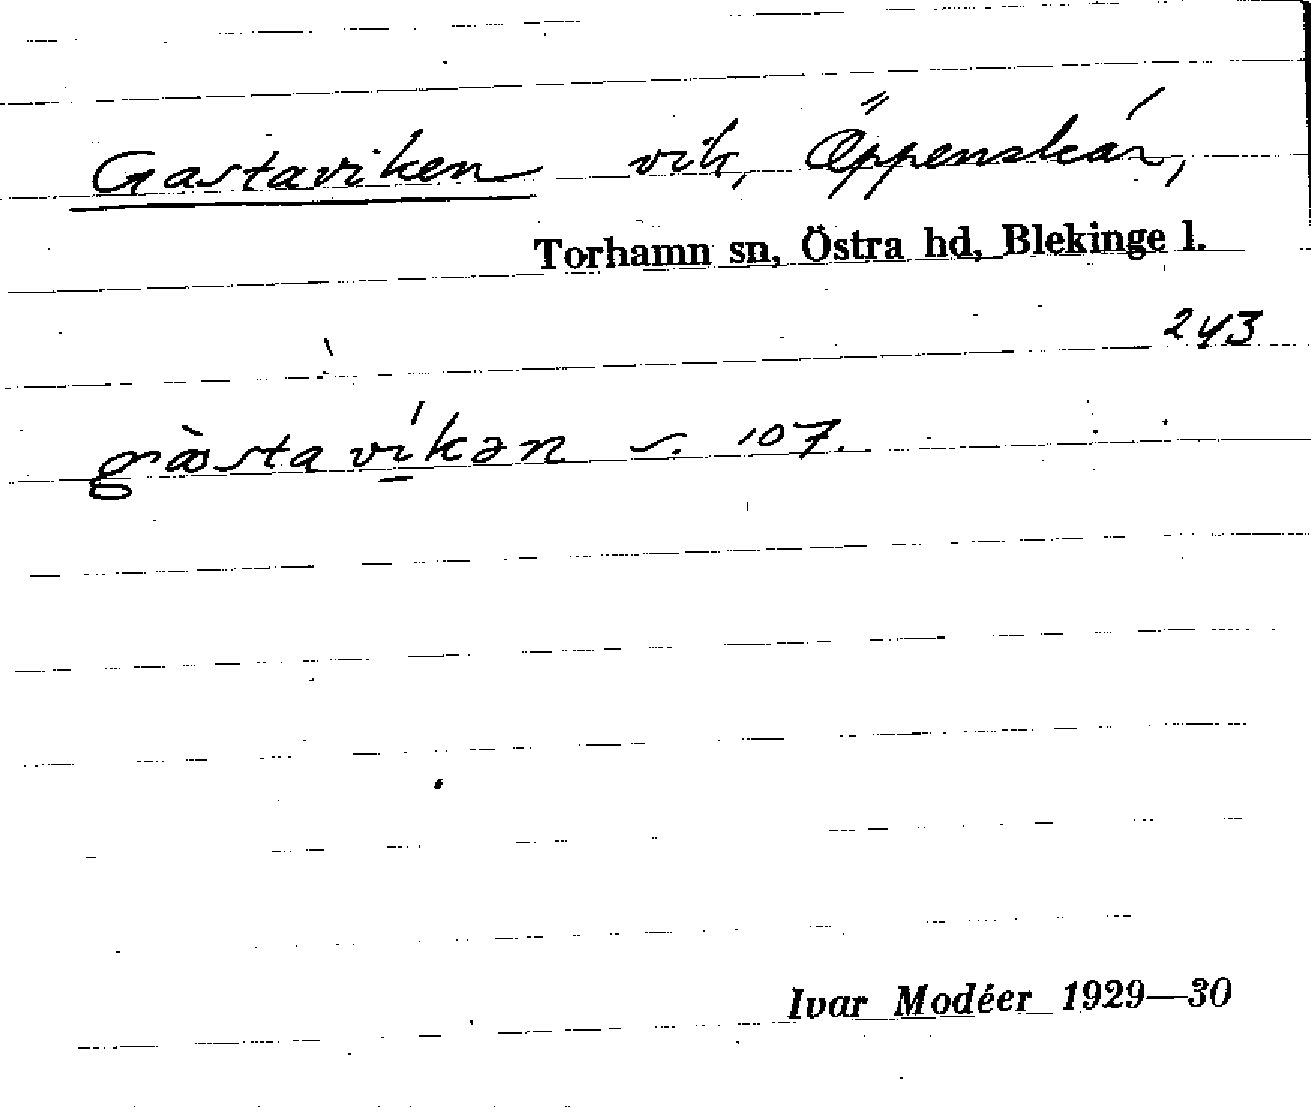 Gastaviken vik, Öppenskär,
Torhamn sn, Östra hd, Blekinge l.
243
gàstavíkən s. 107.
Ivar Modéer 1929—30